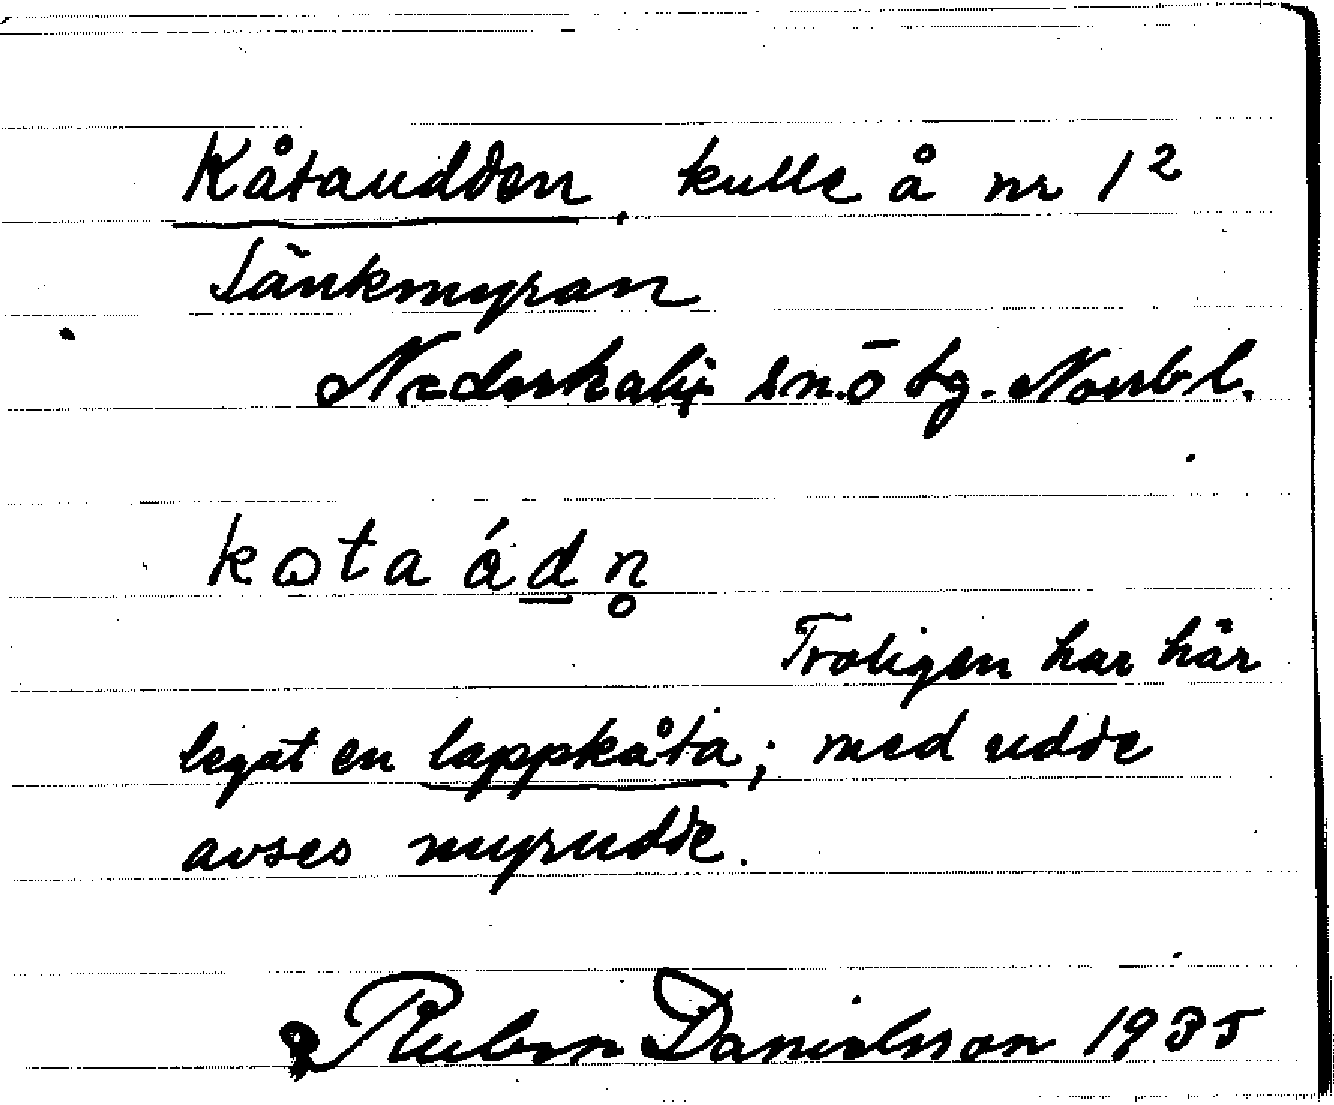 Kåtaudden, kulle å nr 1²
Länkmyran
Nederkalix sn. ö tg. Norrb. l.
kɷta ádn̥
Troligen har här
legat en lappkåta; med udde
avses myrudde.
Ruben Danielsson 1935